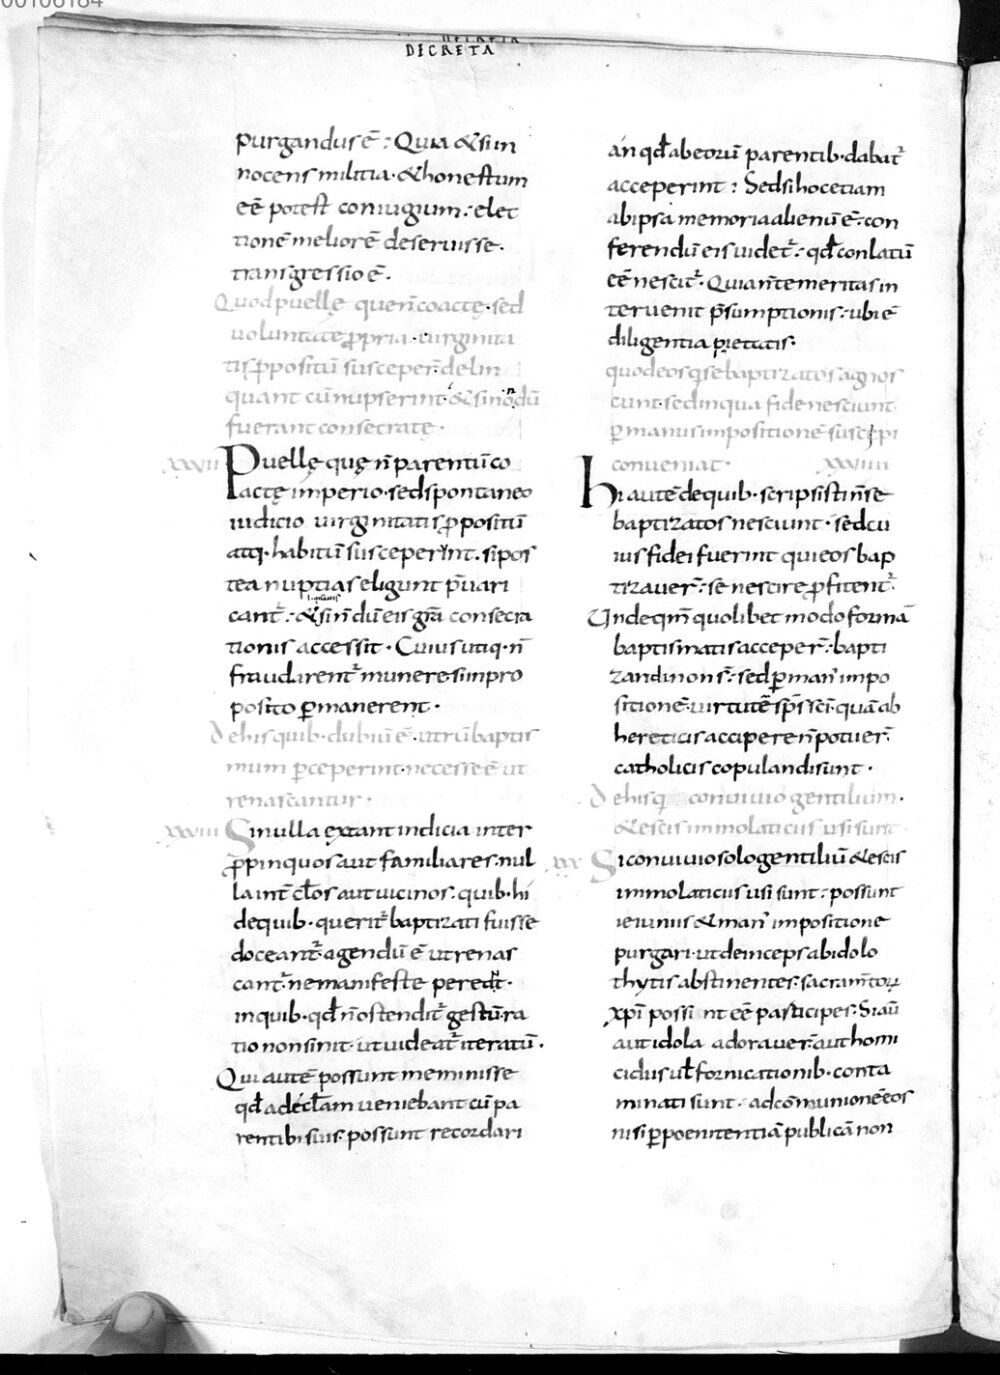 00106184
DECRETA
purgandus ē: Quia & si in
nocens militia· & honestum
eē potest coniugium: elec
tionē meliorē deseruisse·
transgressio ē.
Quod puellę que n̄ coactę· sed
voluntate ꝓpria· virginita
tis ꝓpositū susceper̄ delin
quant cū nupserint· & si nondū
fuerant consecratę·
xxvii Puellę quę n̄ parentū co
actę imperio· sed spontaneo
iudicio virginitatis ꝓpositū
atq· habitū susceperint. si pos
tea nuptias eligunt p̄uari
cant᷑: & si n̄dū eis gr̄a consecra
tionis accessit· Cuius utiq· n̄
fraudarent᷑ munere si in pro
posito ꝑmanerent·
De his quib· dubiū ē· utrū baptis
mum ꝑceperint· necesse ē ut
renascantur·
xxviii Si nulla extant indicia inter
ꝓpinquos aut familiares· nul
la int̄ cłos aut uicinos: quib· hi
de quib· querit᷑ baptizati fuisse
doceant᷑· agendū ē ut renas
cant᷑· ne manifeste pereant·
in quib· qđ n̄ ostendit᷑ gestū· ra
tio non sinit· ut uideat᷑ iteratū·
Qui autē possunt meminisse
qđ ad ecłam ueniebant cū pa
rentib· suis· possunt recordari
an qđ ab eorū parentib· dabat᷑
acceperint: Sed si hoc etiam
ab ipsa memoria alienū ē: con
ferendū eis uidet᷑: qđ conlatū
eē nescit᷑· Quia n̄ temeritas in
teruenit p̄sumptionis: ubi ē
diligentia pietatis·
quod eos q se baptizatos agnos
cunt· sed in qua fide nesciunt
ꝑ manus impositionē suscepi
conueniat· xxviiii
Hi autē de quib· scripsisti n̄ se
baptizatos nesciunt· sed cu
ius fidei fuerint qui eos bap
tizauer̄: se nescire ꝓfitent᷑·
Unde qm̄ quolibet modo formā
baptismatis acceper̄: bapti
zandi non s̄: sed ꝑ man᾿ impo
sitionē· uirtutē sp̄s sc̄i· quā ab
hereticis accipere n̄ potuer̄·
catholicis copulandi sunt·
De his q conuiuio gentilium·
& escis immolaticiis usi sunt·
xxx Si conuiuio solo gentiliū & escis
immolaticiis usi sunt: possunt
ieiuniis & man᾿ impositione
purgari· ut deinceps ab idolo
thytis abstinentes· sacram̄toꝝ
xp̄i possint eē participes· Si aū
aut idola adorauer̄· aut homi
cidiis uł fornicationib· conta
minati sunt· ad cōmunionē eos
nisi ꝑ poenitentiā publicā non